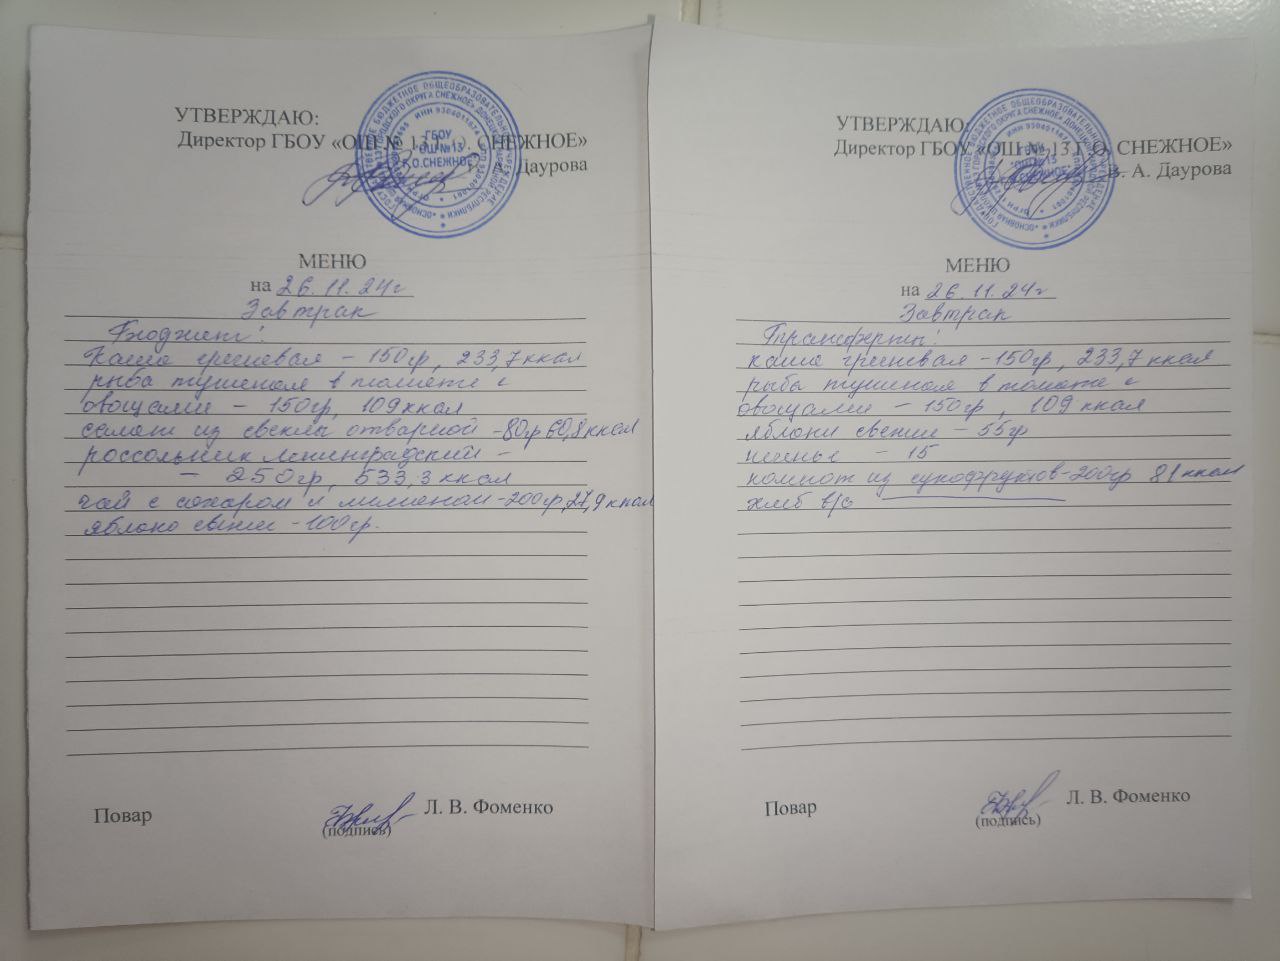 УТВЕРЖДАЮ:
Директор ГБОУ «ОШ № 13 Г. О. СНЕЖНОЕ»
В. А. Даурова
ГБОУ
"ОШ №13
Г.О.СНЕЖНОЕ"
МЕНЮ
на 26.11.24г
Завтрак
Бюджет:
Каша гречневая - 150гр, 233,7 ккал
рыба тушеная в томате с
овощами - 150гр, 109 ккал
салат из свеклы отварной - 80гр 60,8 ккал
россольник Ленинградский -
- 250гр, 533,3 ккал
чай с сахаром и лимоном - 200гр, 27,9 ккал
яблоко свежие - 100гр.
Повар
Л. В. Фоменко
(подпись)
УТВЕРЖДАЮ:
Директор ГБОУ «ОШ № 13 Г. О. СНЕЖНОЕ»
В. А. Даурова
МЕНЮ
на 26.11.24г
Завтрак
Трансферты:
каша гречневая - 150гр, 233,7 ккал
рыба тушеная в томате с
овощами - 150гр, 109 ккал
яблоки свежие - 55гр
печенье - 15
компот из сухофруктов - 200гр 81 ккал
хлеб в/с
Повар
Л. В. Фоменко
(подпись)